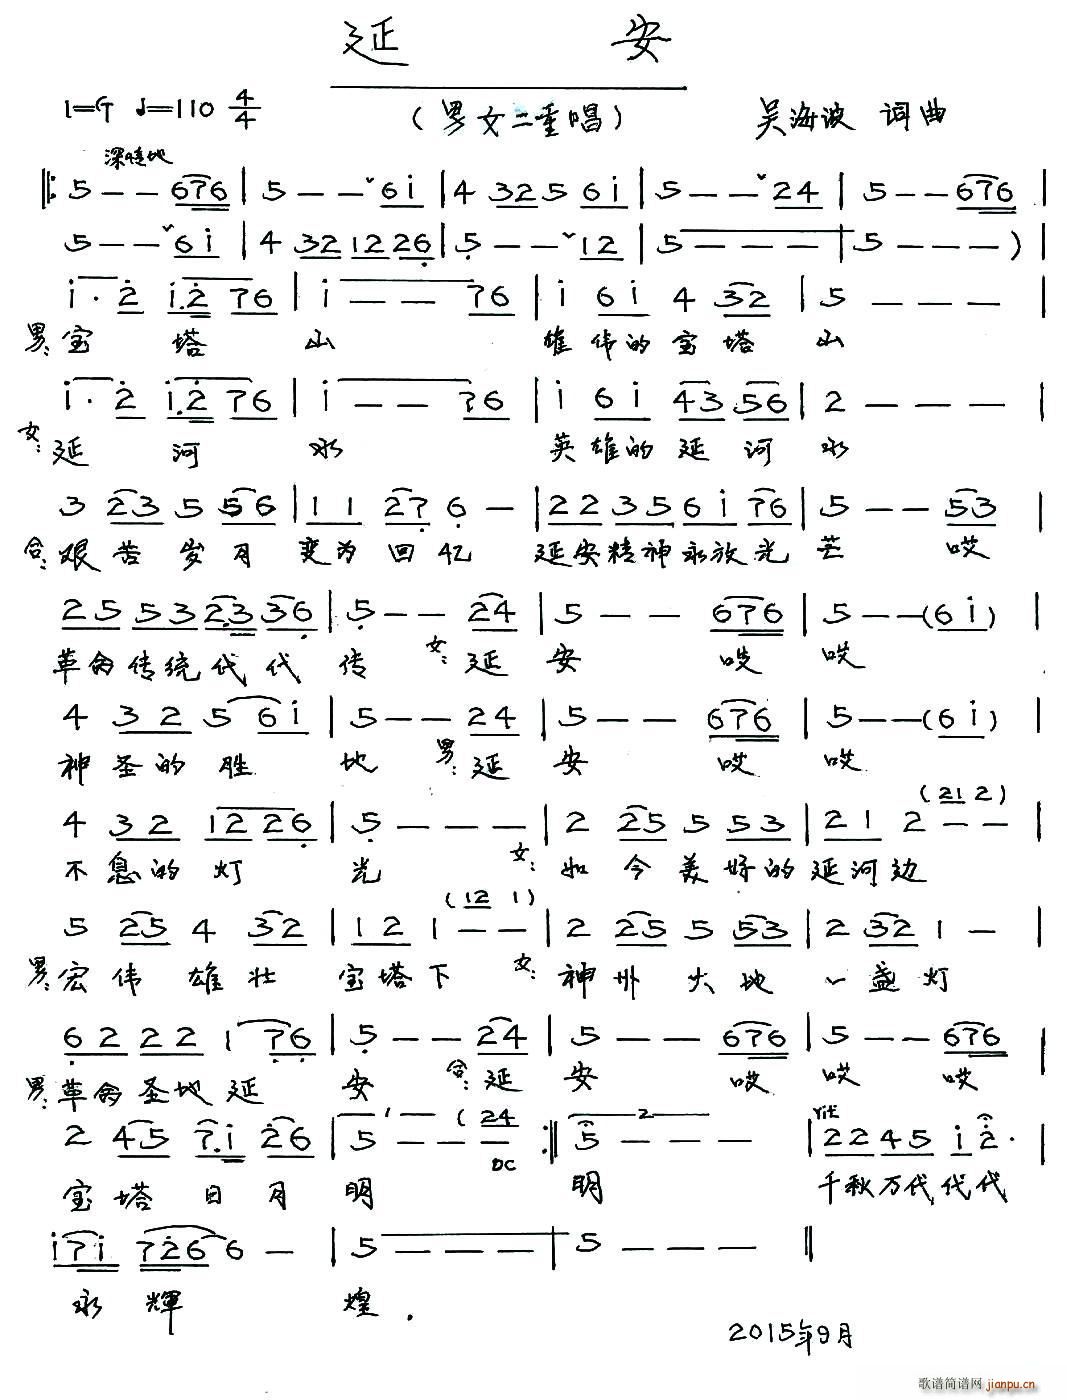 延 安
1=G ♩=110 4/4 （男女二重唱） 吴海波 词曲
深情地
‖: 5 - - 676 | 5 - - ˇ 6i | 4 32 5 6i | 5 - - ˇ 24 | 5 - - 676 |
5 - - ˇ 6i | 4 32 12 26 | 5 - - ˇ 12 | 5 - - - | 5 - - - ) |
i· 2 i.2 76 | i - - 76 | i 6i 4 32 | 5 - - - |
男：宝 塔 山 雄伟的宝塔山
i· 2 i.2 76 | i - - 76 | i 6i 43.56 | 2 - - - |
女：延 河 水 英雄的延河水
3 23 5 56 | 11 27 6 - | 22 35 6i 76 | 5 - - 53 |
合：艰苦岁月 变为回忆 延安精神永放光芒 哎
25 53 2.3 36 | 5 - - 24 | 5 - - 676 | 5 - - (6i) |
革命传统代代传 女：延 安 哎 哎
4 32 5 6i | 5 - - 24 | 5 - - 676 | 5 - - (6i) |
神圣的胜 地 男：延 安 哎 哎
(21 2)
4 32 12 26 | 5 - - - | 2 25 5 53 | 21 2 - - |
不息的灯 光 女：如今美好的延河边
(12 1)
5 25 4 32 | 12 1 - - | 2 25 5 53 | 2 32 1 - |
男：宏伟雄壮 宝塔下 女：神州大地 一盏灯
62 22 1 76 | 5 - - 24 | 5 - - 676 | 5 - - 676 |
男：革命圣地延 安 合：延 安 哎 哎 哎
1 2 rit
2 45 7.i 26 | 5 - - (24 - :‖ 5 - - - | 22 45 i 2· |
DC
宝塔日月 明 明 千秋万代代代
i7i 7266 - | 5 - - - | 5 - - - ‖
永輝 煌．
2015年9月
歌谱简谱网 jianpu.cn